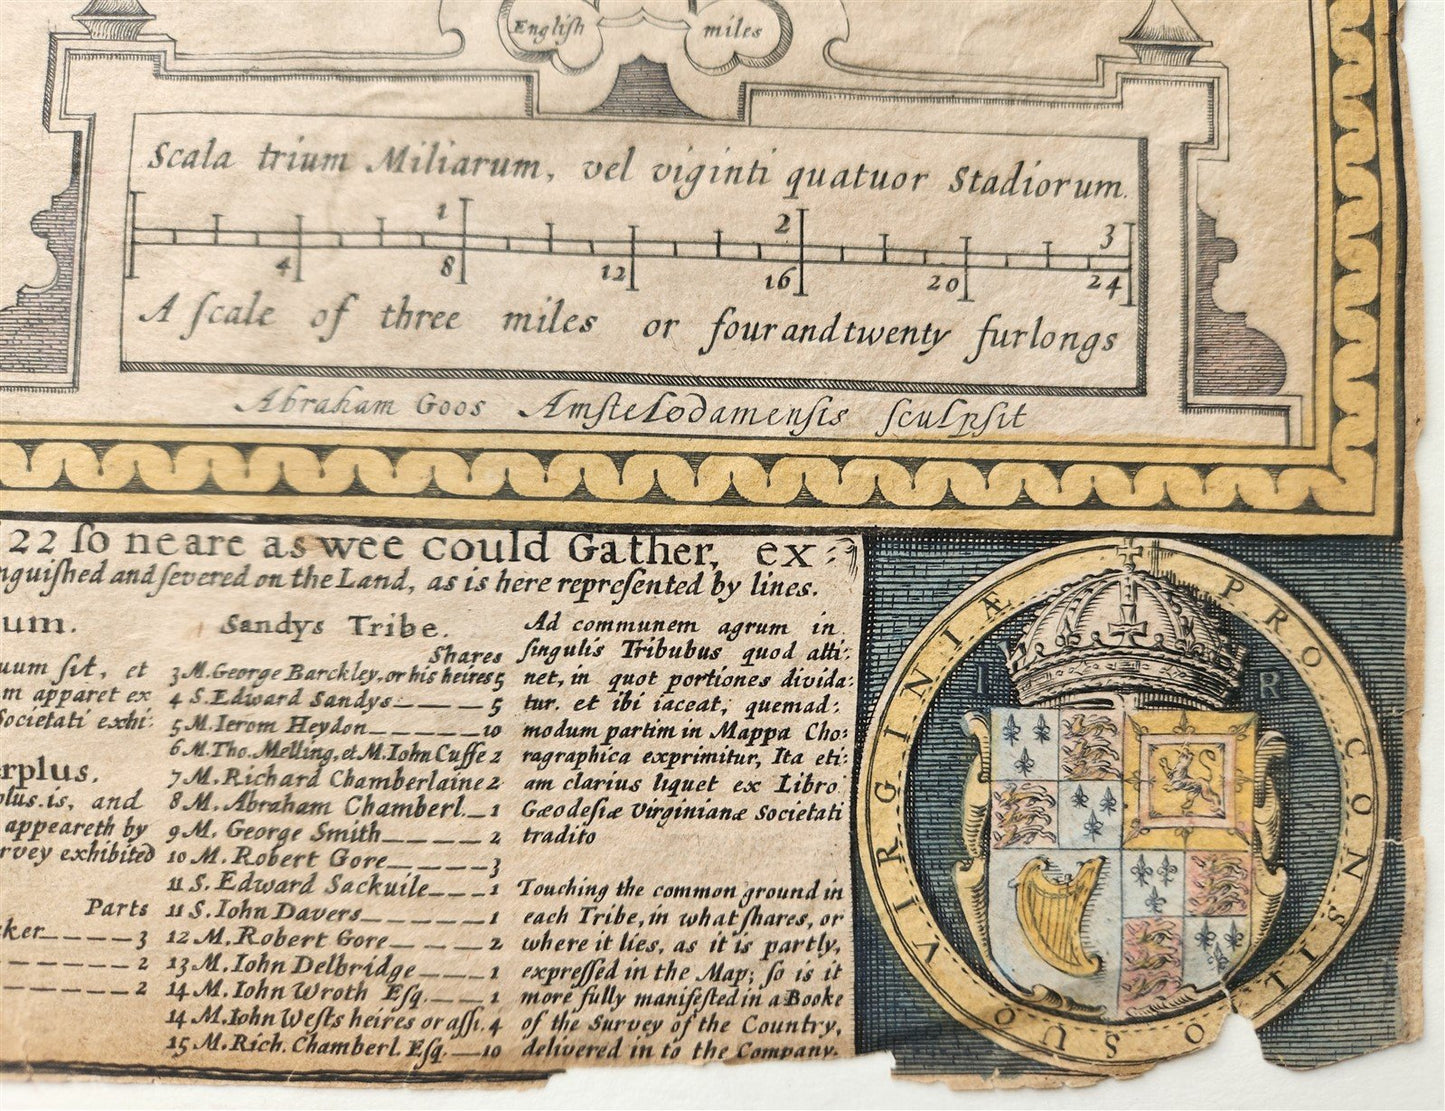 English miles
Scala trium Miliarum, vel viginti quatuor Stadiorum.
1 2 3
4 8 12 16 20 24
A ſcale of three miles or four and twenty furlongs
Abraham Goos Amstelodamenſis ſculpſit
22 ſo neare as wee could Gather, ex:
nguiſhed and ſevered on the Land, as is here repreſented by lines.
um.
uum ſit, et
m apparet ex
Societati exhi:
erplus.
plus.is, and
appeareth by
rvey exhibited
Parts
ker_____3
_____2
_____2
Sandys Tribe.
Shares
3 M. George Barckley, or his heires 5
4 S. Edward Sandys____5
5 M. Ierom Heydon_____10
6 M. Tho. Melling, et M. Iohn Cuffe 2
7 M. Richard Chamberlaine 2
8 M. Abraham Chamberl._1
9 M. George Smith_____2
10 M. Robert Gore_____3
11 S. Edward Sackuile___1
11 S. Iohn Davers_____1
12 M. Robert Gore____2
13 M. Iohn Delbridge___1
14 M. Iohn Wroth Eſq.___1
14 M. Iohn Weſts heires or aſſi. 4
15 M. Rich. Chamberl. Eſq.__10
Ad communem agrum in
ſingulis Tribubus quod atti:
net, in quot portiones divida:
tur. et ibi iaceat, quemad:
modum partim in Mappa Cho:
ragraphica exprimitur, Ita eti:
am clarius liquet ex Libro
Gæodeſiæ Virginianæ Societati
tradito
Touching the common ground in
each Tribe, in what ſhares, or
where it lies, as it is partly,
expreſſed in the Map; ſo is it
more fully manifeſted in a Booke
of the Survey of the Country,
delivered in to the Company.
I R
PRO CONSILIO SUO VIRGINIÆ